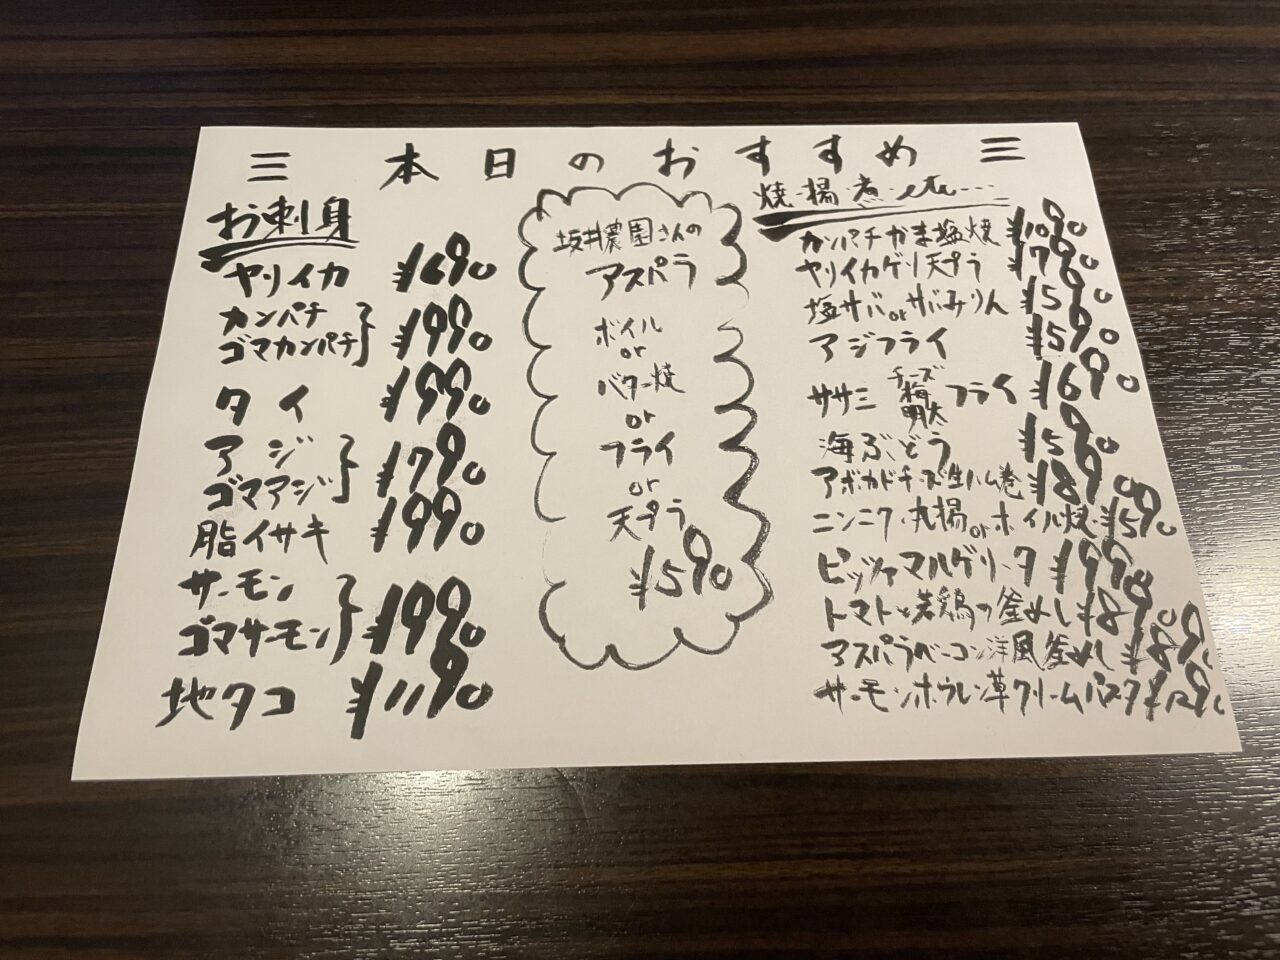 三 本日のおすすめ 三
お刺身
ヤリイカ ¥1690
カンパチ
ゴマカンパチ ¥1990
タイ ¥1990
アジ
ゴマアジ ¥1790
脂イサキ ¥1990
サーモン
ゴマサーモン ¥1990
地タコ ¥1190
坂井農園さんの
アスパラ
ボイル
or
バター焼
or
フライ
or
天プラ
¥1590
焼・揚・煮・etc……
カンパチかま塩焼 ¥1090
ヤリイカゲソ天プラ ¥790
塩サバorサバみりん ¥590
アジフライ ¥590
ササミ チーズ 梅 明太 フライ ¥1690
海ぶどう ¥590
アボカドチーズ生ハム巻 ¥1890
ニンニク・丸揚orホイル焼・¥590
ピッツァマルゲリータ ¥1990
トマトと若鶏の釜めし ¥1890
アスパラベーコン洋風釜めし ¥1890
サーモンホウレン草クリームパスタ ¥1290